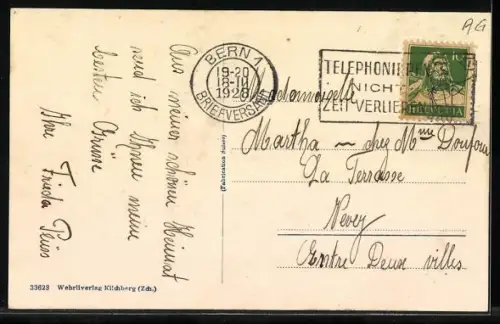 AG
BERN 1
19-20
1928
BRIEFVERSAND
TELEPHONIEREN
NICHT
ZEIT VERLIEREN
10
HELVETIA
Aus meiner schönen Heimat
send ich Ihnen meine
besten Grüsse
Ihre Frieda
Mademoiselle
Martha – chez Mme Dufour
La Terrasse
Vevey
Entre Deux villes
(Fabrication Suisse)
33623 Wehrliverlag Kilchberg (Zch.)